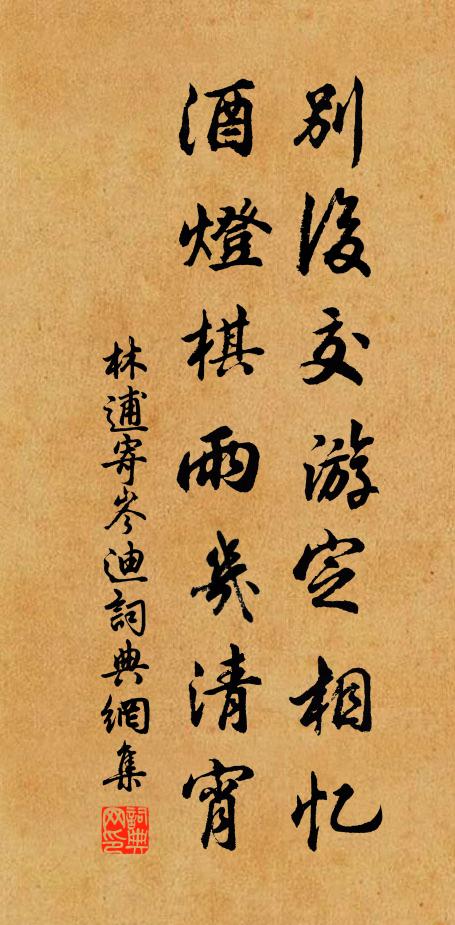 別後交游定相忆
酒燈棋雨幾清宵
林逋寄岑迪詞典網集
詞典网印